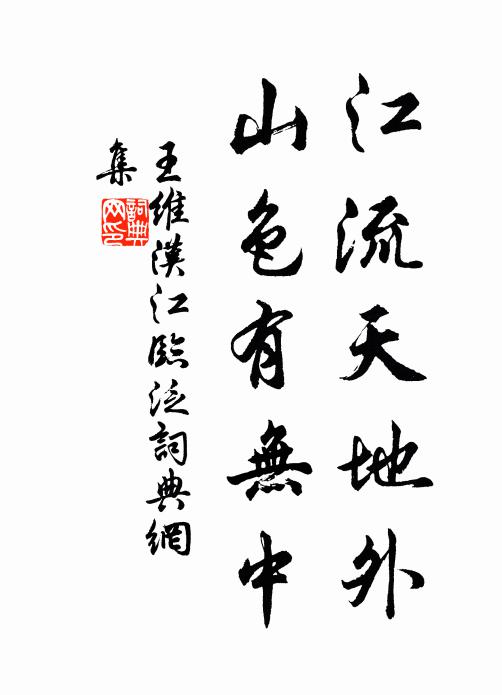 江流天地外
山色有無中
王維漢江臨泛詞典網
集
詞典網印